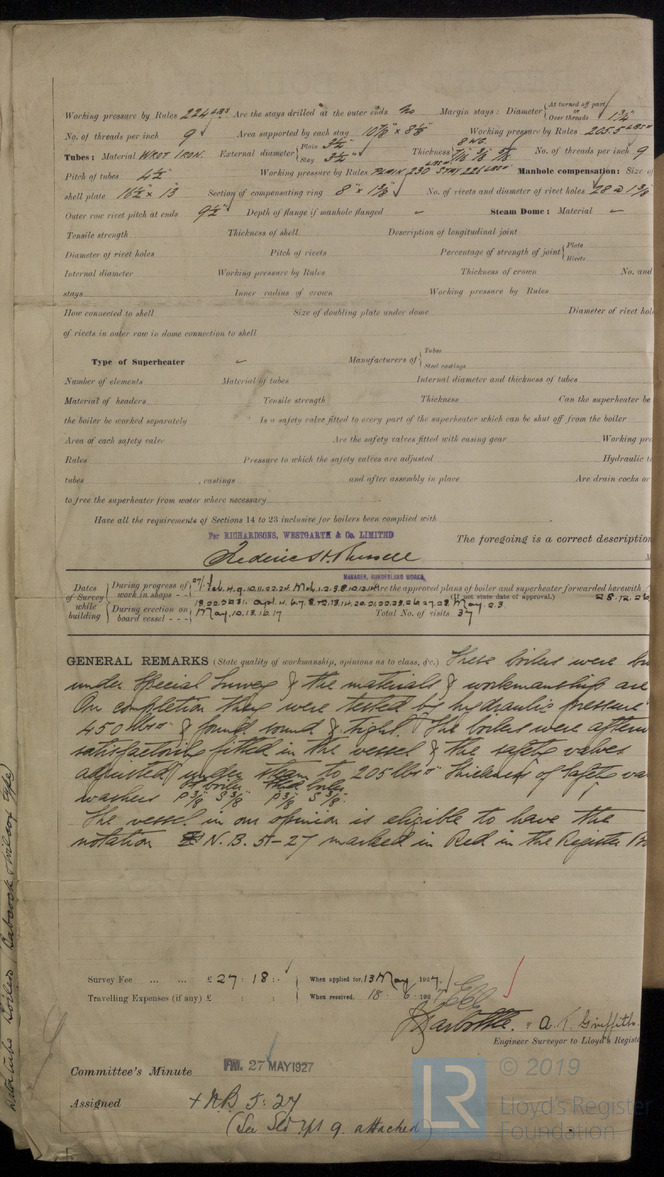 Working pressure by Rules 224 LBS Are the stays drilled at the outer ends No Margin stays: Diameter { At turned off part or Over threads 1 3/4"
No. of threads per inch 9 Area supported by each stay 10 7/8" x 8 5/8" Working pressure by Rules 205.5 LBS
Tubes: Material WROT IRON. External diameter { Plain 3 1/2" Stay 3 1/2" Thickness { 8 WG. 5/16 3/8 No. of threads per inch 9
Pitch of tubes 4 1/2" Working pressure by Rules PLAIN 230 LBS STAY 226 LBS Manhole compensation: Size of
shell plate 16 1/2 x 13 Section of compensating ring 8" x 1 3/8" No. of rivets and diameter of rivet holes 28 @ 1 3/8
Outer row rivet pitch at ends 9 1/2" Depth of flange if manhole flanged – Steam Dome: Material –
Tensile strength Thickness of shell Description of longitudinal joint
Diameter of rivet holes Pitch of rivets Percentage of strength of joint { Plate Rivets
Internal diameter Working pressure by Rules Thickness of crown No. and
stays Inner radius of crown Working pressure by Rules
How connected to shell Size of doubling plate under dome Diameter of rivet hol
of rivets in outer row in dome connection to shell
Type of Superheater – Manufacturers of { Tubes Steel castings
Number of elements Material of tubes Internal diameter and thickness of tubes
Material of headers Tensile strength Thickness Can the superheater be
the boiler be worked separately Is a safety valve fitted to every part of the superheater which can be shut off from the boiler
Area of each safety valve Are the safety valves fitted with easing gear Working pre
Rules Pressure to which the safety valves are adjusted Hydraulic t
tubes , castings and after assembly in place Are drain cocks or
to free the superheater from water where necessary
Have all the requirements of Sections 14 to 23 inclusive for boilers been complied with
For RICHARDSONS, WESTGARTH & Co. LIMITED
The foregoing is a correct description
Frederic H. Russell
MANAGER, SUNDERLAND WORKS.
Dates of Survey while building { During progress of work in shops - - 27/ Feb. 4. 9. 10. 11. 22. 24. Mch. 1. 2. 3. 8. 10. 12. 14 Are the approved plans of boiler and superheater forwarded herewith
(If not state date of approval.) 28.12.26
18. 20. 22. 23. 31. Apl. 4. 6. 7. 8. 12. 13. 14. 20. 21. 22. 25. 26. 27. 28 May. 2. 3
During erection on board vessel - - - May. 10. 13. 16. 17 Total No. of visits 37
GENERAL REMARKS (State quality of workmanship, opinions as to class, &c.) These boilers were
under Special Survey & the materials & workmanship are
On completion they were tested by hydraulic pressure
450 lbs & found sound & tight. The boilers were afterw
satisfactorily fitted in the vessel & the safety valves
adjusted under steam to 205 lbs Thickness of safety va
washers P 3/8 S 3/8 P 3/8 S 3/8.
The vessel in our opinion is eligible to have the
notation N.B. 5-27 marked in Red in the Register
Survey Fee ... ... £ 27 : 18 : When applied for, 13 May 1927.
Travelling Expenses (if any) £ : : When received, 18 . 6 . 192
& A. T. Griffiths.
Engineer Surveyor to Lloyd's Registe
Committee's Minute FRI. 27 MAY 1927
Assigned + N.B. 5. 27
(See Sld rpt 9. attached)
© 2019
LR Lloyd's Register
Foundation